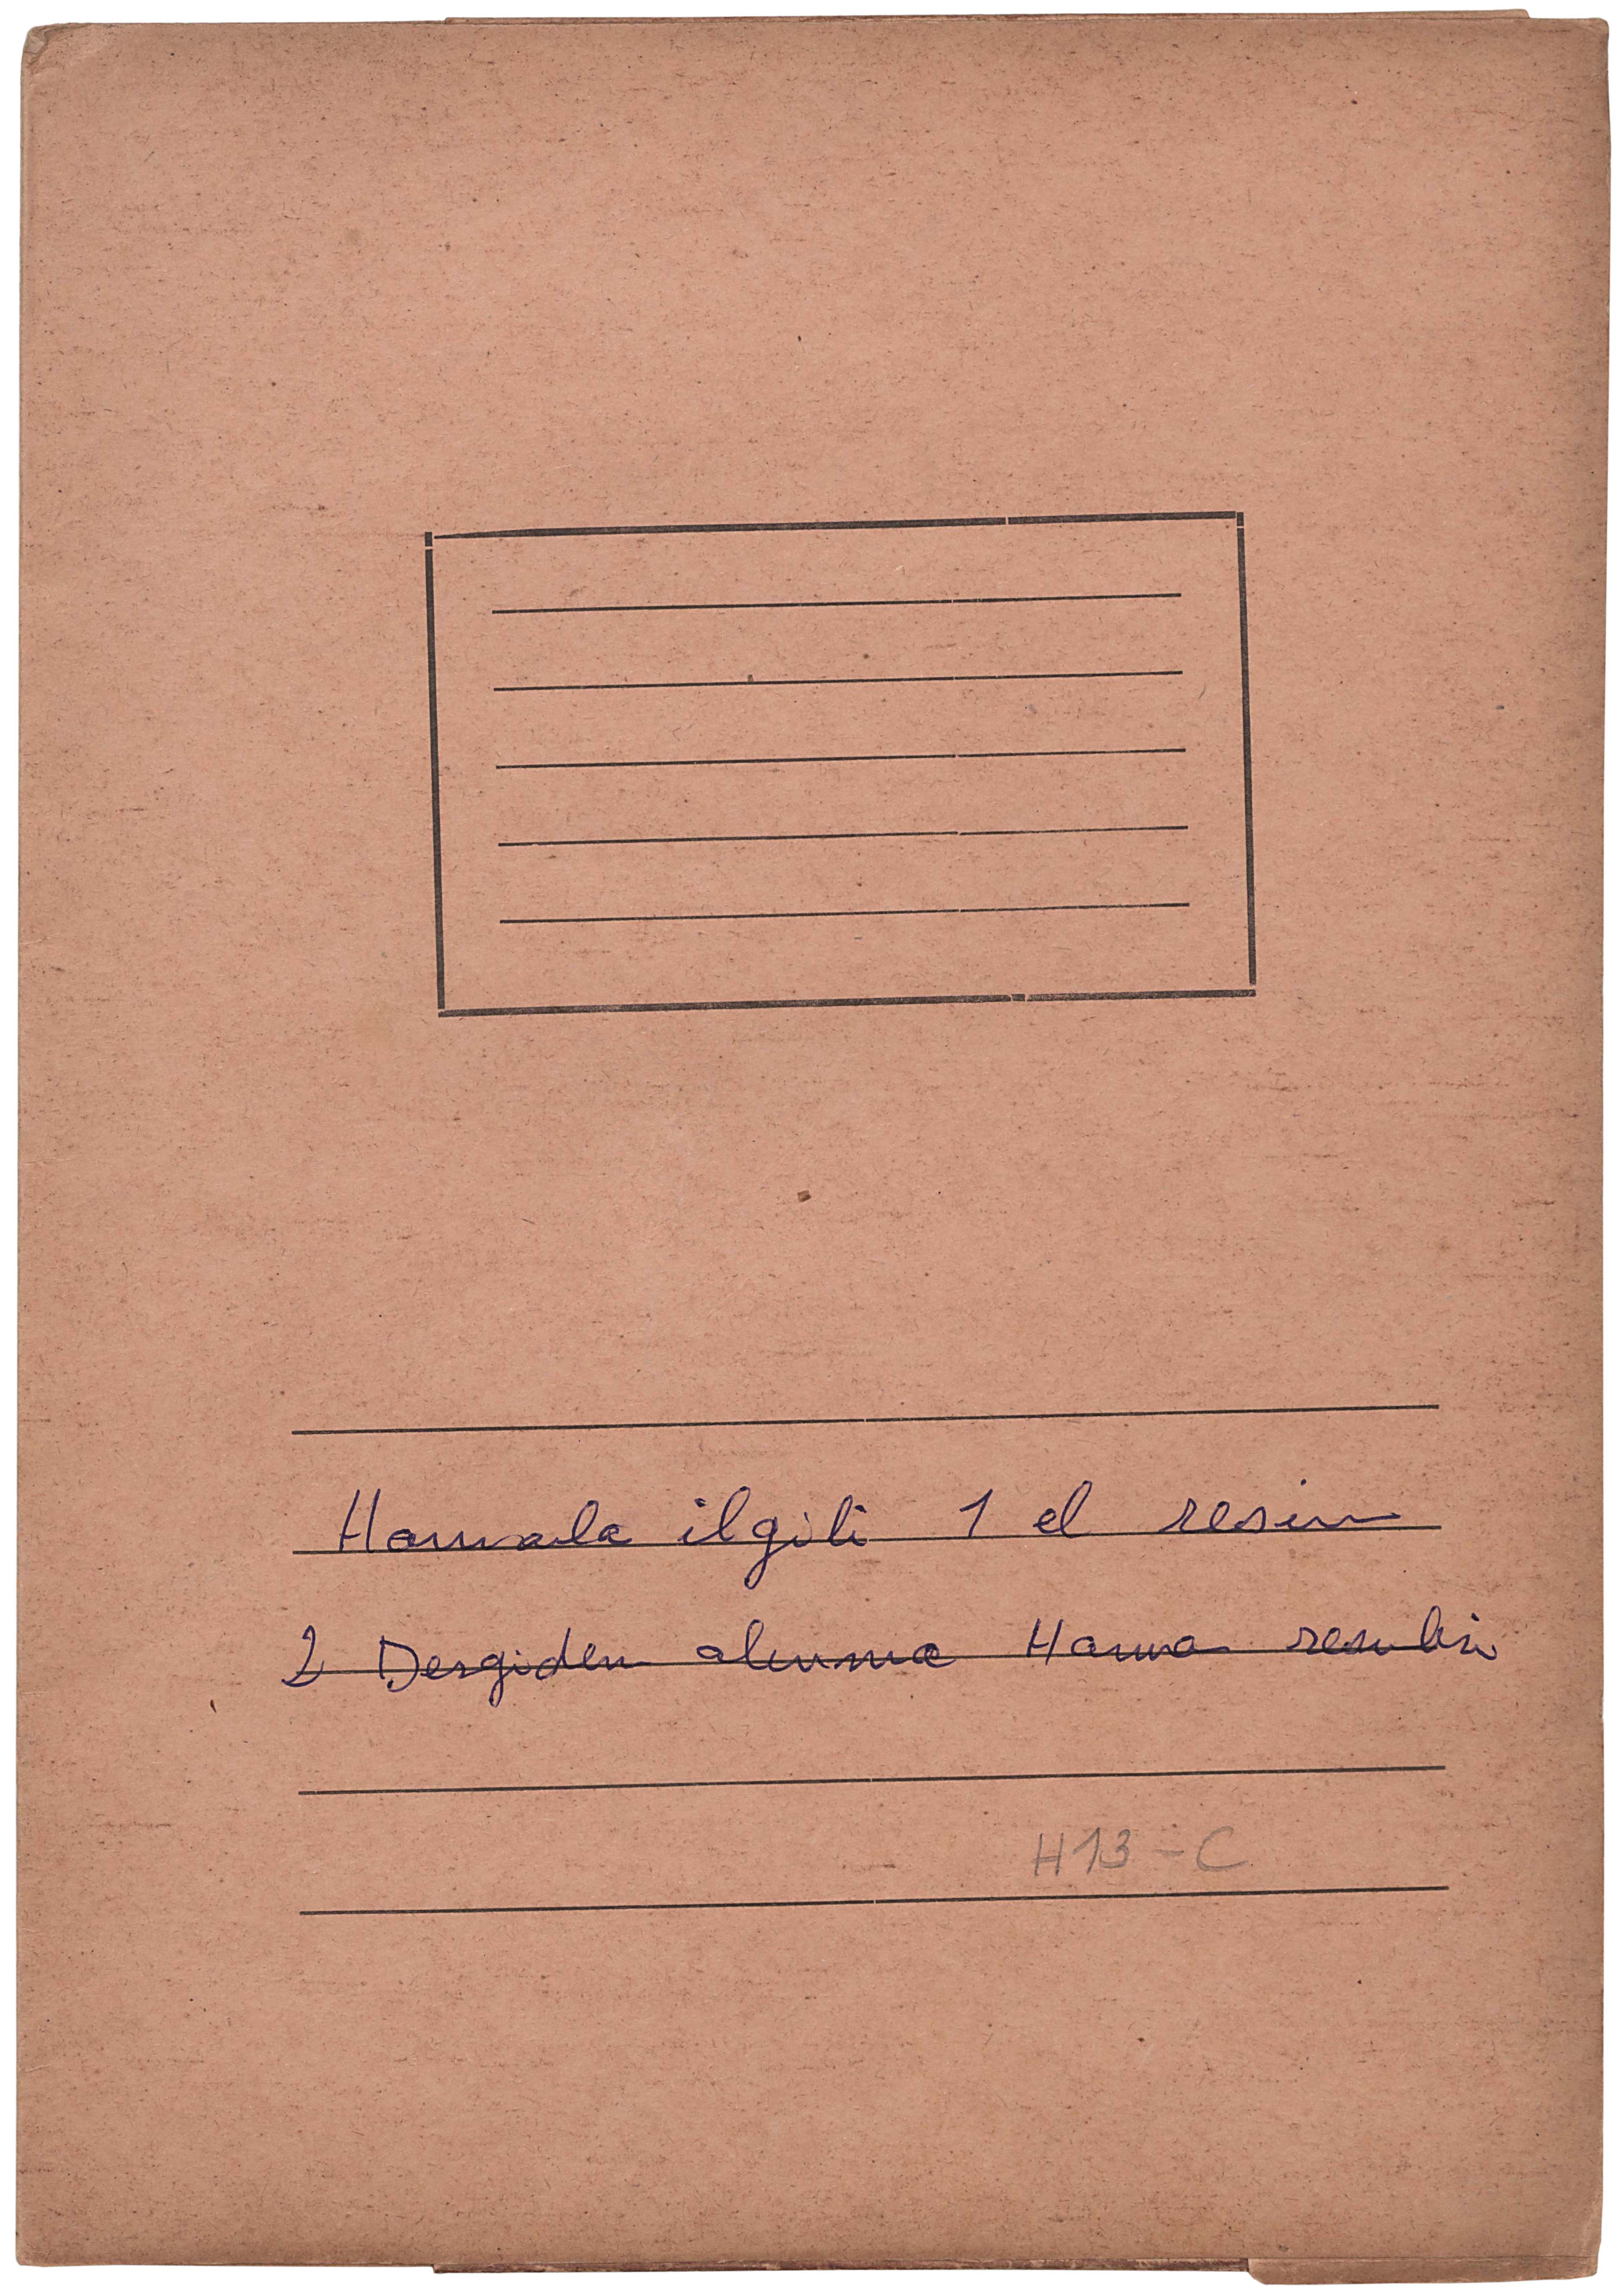 Hamala ilgili 1 el resim
2 Dergiden alınma Hama resimleri
H13-C